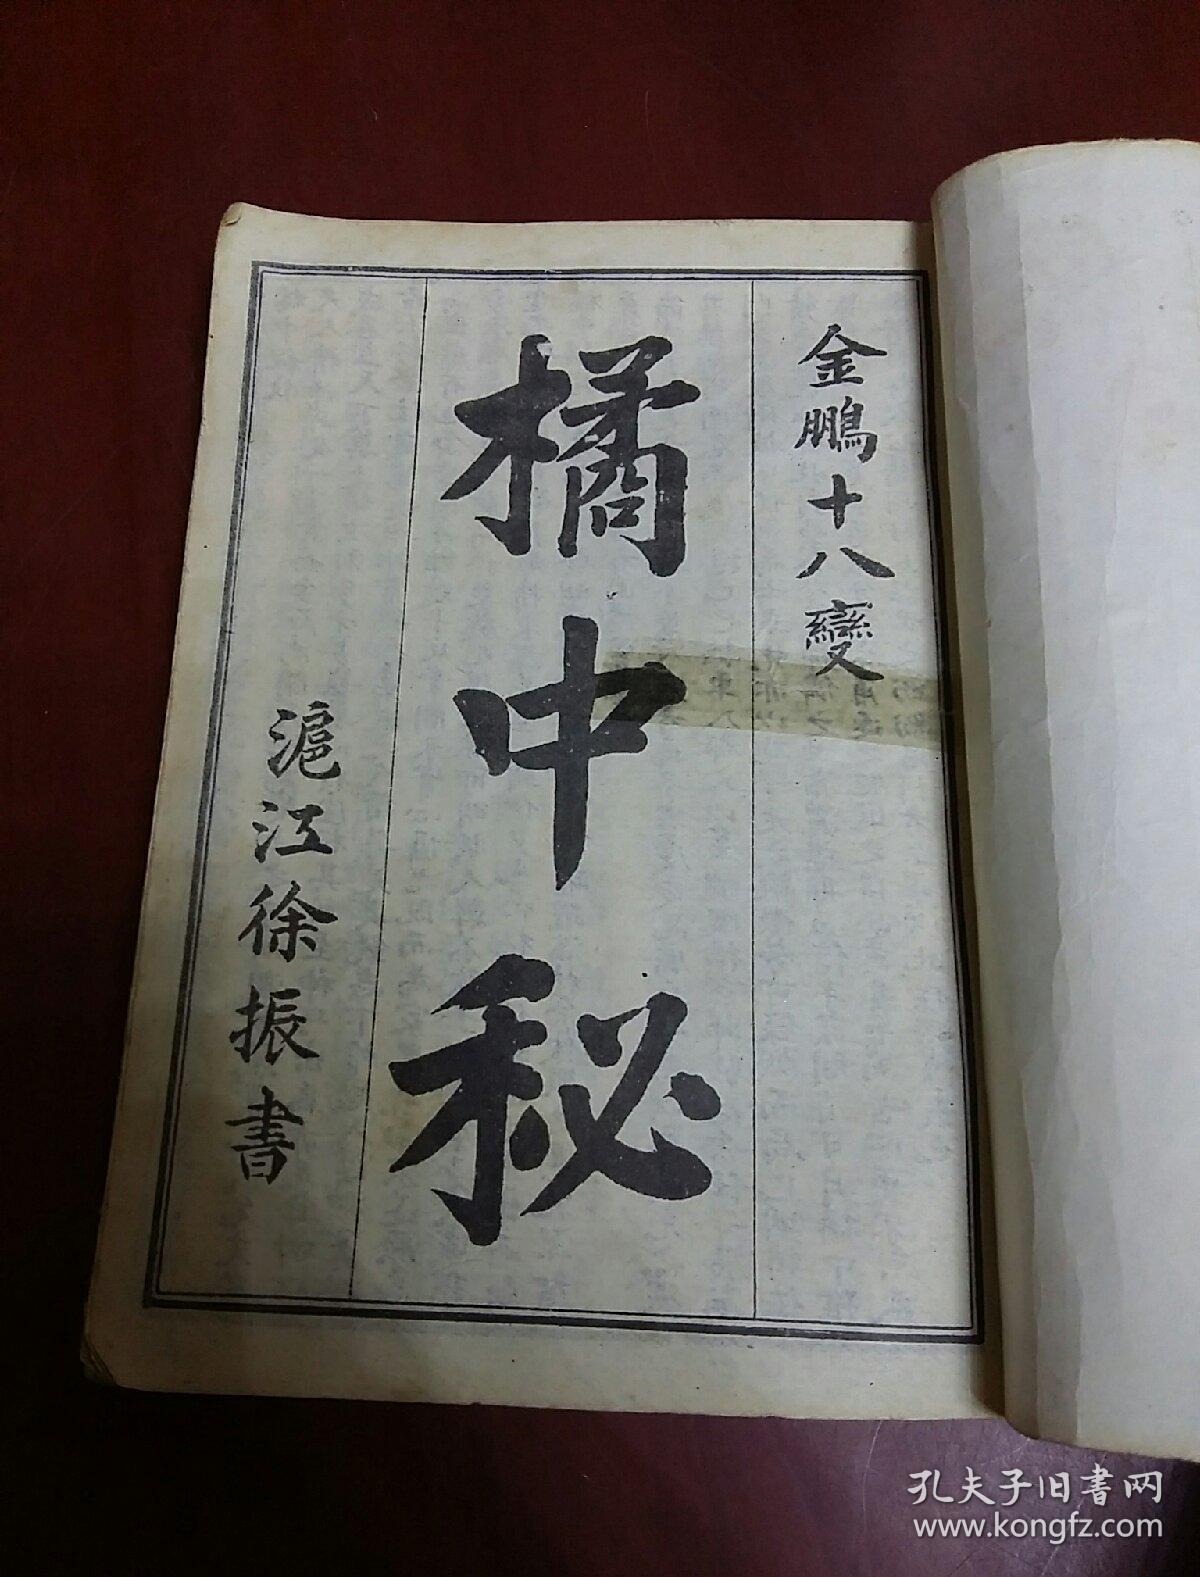 金鵬十八變
橘中秘
滬江徐振書
孔夫子旧书网
www.kongfz.com